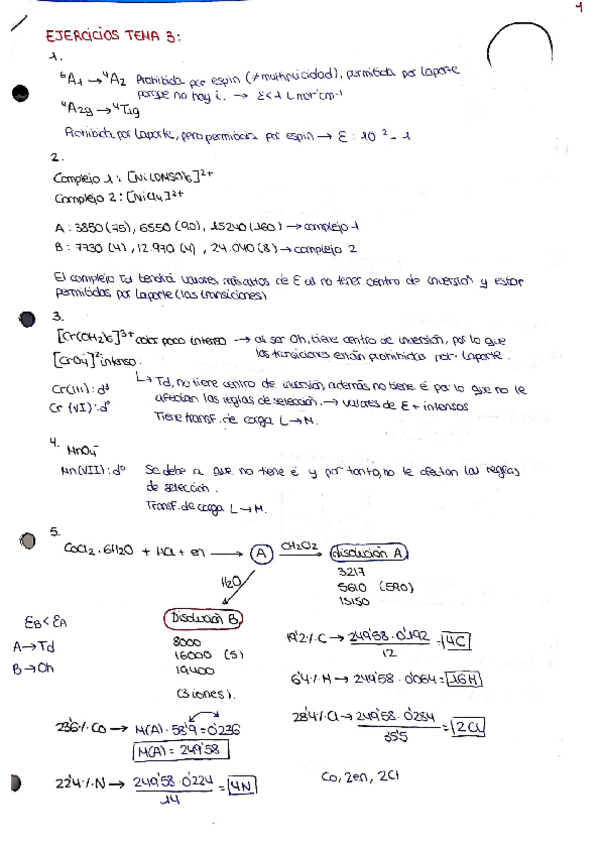 1
EJERCICIOS TEMA 3:
1.
⁶A₁ → ⁴A₂ Prohibida por espín (≠ multiplicidad), permitida por Laporte
porque no hay i. → ε < 1 L mol⁻¹ cm⁻¹
⁴A₂g → ⁴T₁g
Prohibida por Laporte, pero permitida por espín → ε : 10² - 1
2.
Complejo 1 : [Ni(DMSO)₆]²⁺
Complejo 2 : [NiCl₄]²⁺
A : 3850 (75), 6550 (90), 15240 (160) → complejo 1
B : 7730 (4), 12.970 (4), 24.040 (8) → complejo 2
El complejo Td tendrá valores más altos de ε al no tener centro de inversión y estar
permitidas por Laporte (las transiciones)
3.
[Cr(H₂O)₆]³⁺ color poco intenso → al ser Oh, tiene centro de inversión, por lo que
las transiciones están prohibidas por Laporte.
[CrO₄]²⁻ intenso.
↳ Td, no tiene centro de inversión, además no tiene é por lo que no le
Cr(III): d³ afectan las reglas de selección. → valores de ε + intensos
Cr (VI): d⁰ Tiene transf. de carga L → M.
4.
MnO₄⁻
Mn(VII): d⁰ Se debe a que no tiene é y por tanto, no le afectan las reglas
de selección.
Transf. de carga L → M.
5.
CoCl₂·6H₂O + HCl + en → A CH₂Cl₂ → disolución A
H₂O
3217
5610 (590)
15150
εB < εA
A → Td
B → Oh
Disolución B
8000
16000 (5)
19400
(3 iones).
19'2% C → 249'58 · 0'192 / 12 = 4C
6'4% H → 249'58 · 0'064 = 16H
28'4% Cl → 249'58 · 0'284 / 35'5 = 2Cl
23'6% Co → M(A) · 58'9 = 0'236
M(A) = 249'58
22'4% N → 249'58 · 0'224 / 14 = 4N
Co, 2en, 2Cl